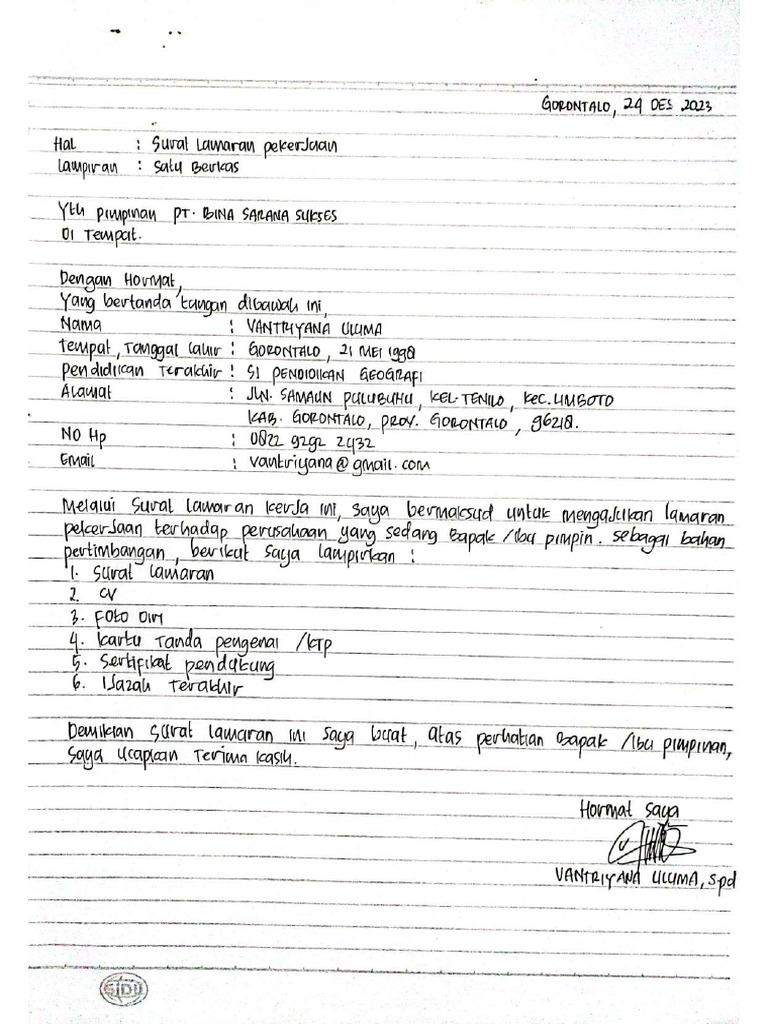 GORONTALO, 24 DES 2023
Hal : Surat Lamaran pekerjaan
Lampiran : Satu Berkas
Yth pimpinan PT. BINA SARANA SUKSES
Di Tempat.
Dengan Hormat,
Yang bertanda tangan dibawah ini,
Nama : VANTRIYANA ULUMA
Tempat, Tanggal Lahir : GORONTALO, 21 MEI 1998
Pendidikan Terakhir : S1 PENDIDIKAN GEOGRAFI
Alamat : JLN. SAMAUN PULUBUHU, KEL. TENILO, KEC. LIMBOTO
KAB. GORONTALO, PROV. GORONTALO, 96218.
NO Hp : 0822 9292 2432
Email : vantriyana@gmail.com
Melalui Surat Lamaran kerja ini, saya bermaksud untuk mengajukan lamaran
pekerjaan terhadap perusahaan yang sedang Bapak /Ibu pimpin. Sebagai bahan
pertimbangan, berikut saya lampirkan :
1. Surat Lamaran
2. CV
3. Foto Diri
4. Kartu Tanda pengenal /KTP
5. Sertifikat pendukung
6. Ijazah Terakhir
Demikian Surat Lamaran ini saya buat, atas perhatian Bapak /Ibu pimpinan,
saya ucapkan Terima kasih.
Hormat Saya
VANTRIYANA ULUMA, Spd
SIDU